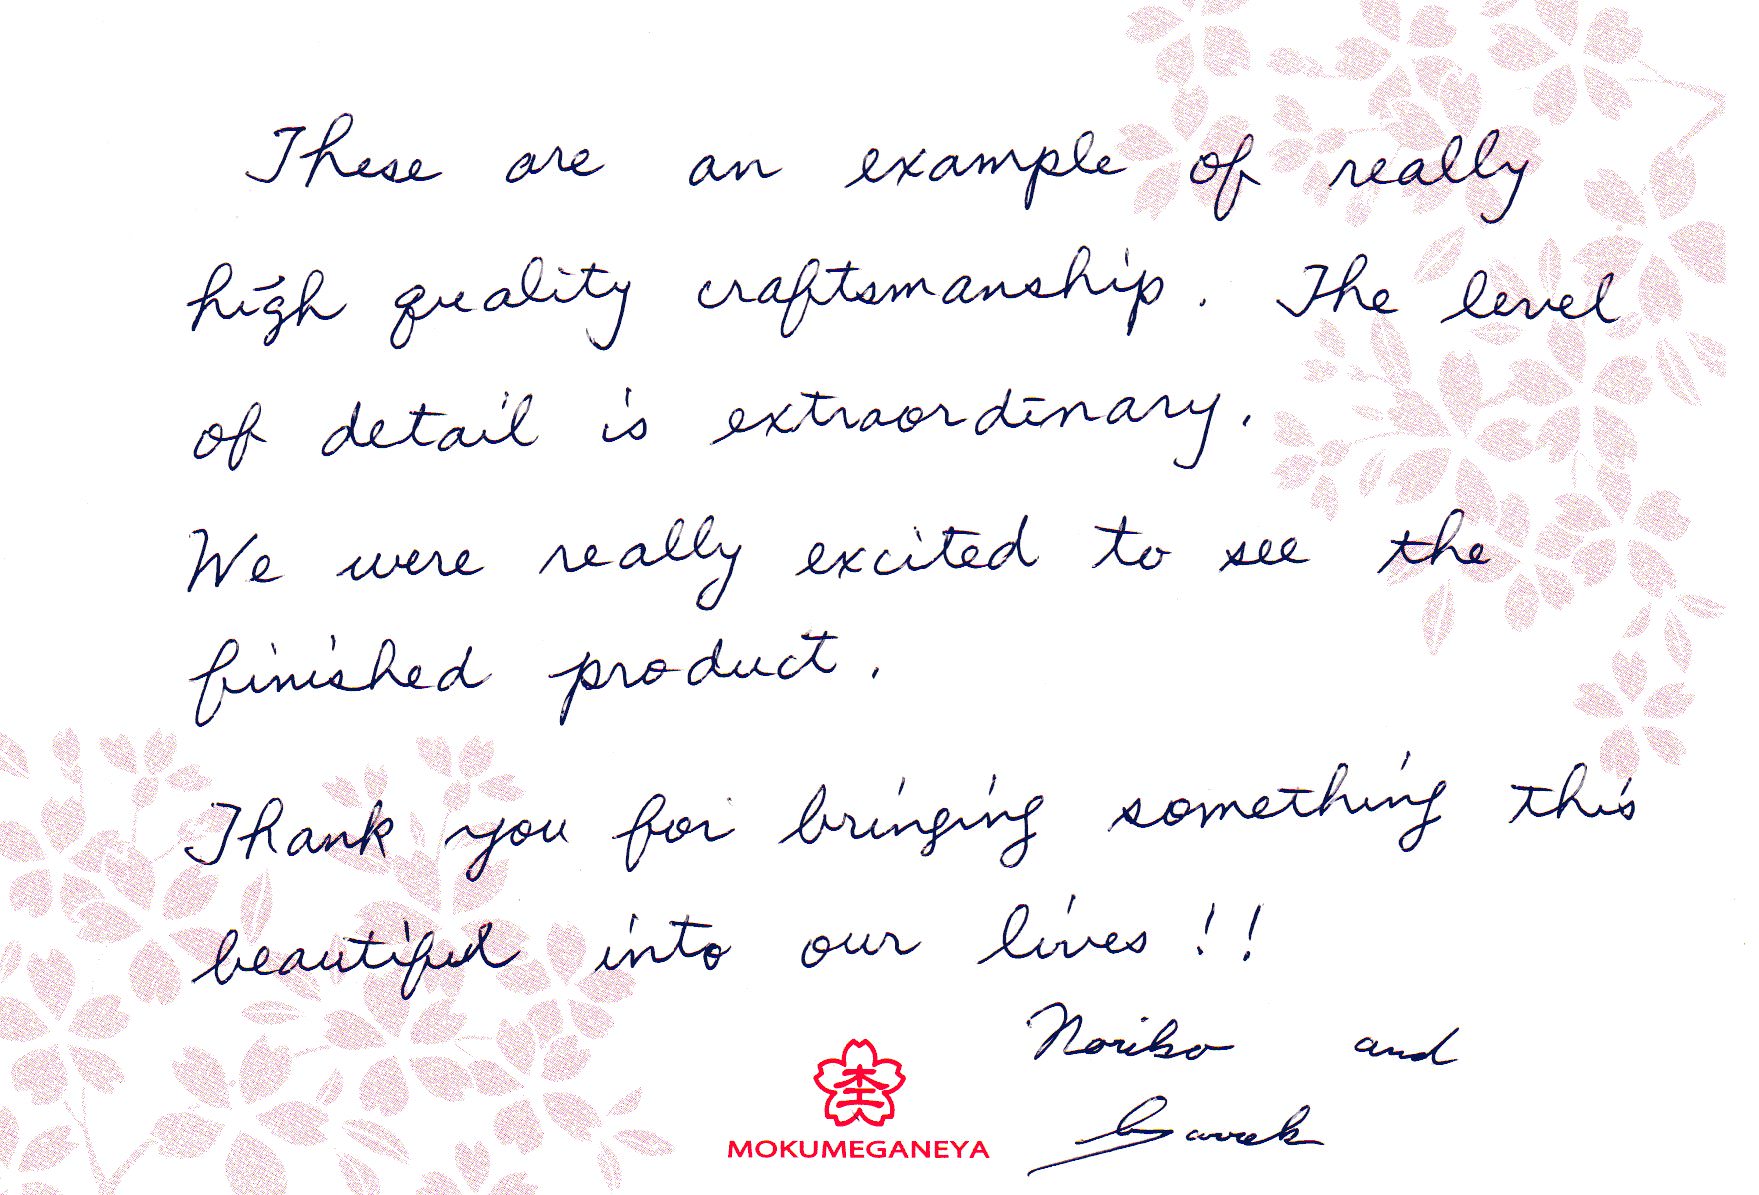 These are an example of really
high quality craftsmanship. The level
of detail is extraordinary.
We were really excited to see the
finished product.
Thank you for bringing something this
beautiful into our lives!!
Noriko and
MOKUMEGANEYA